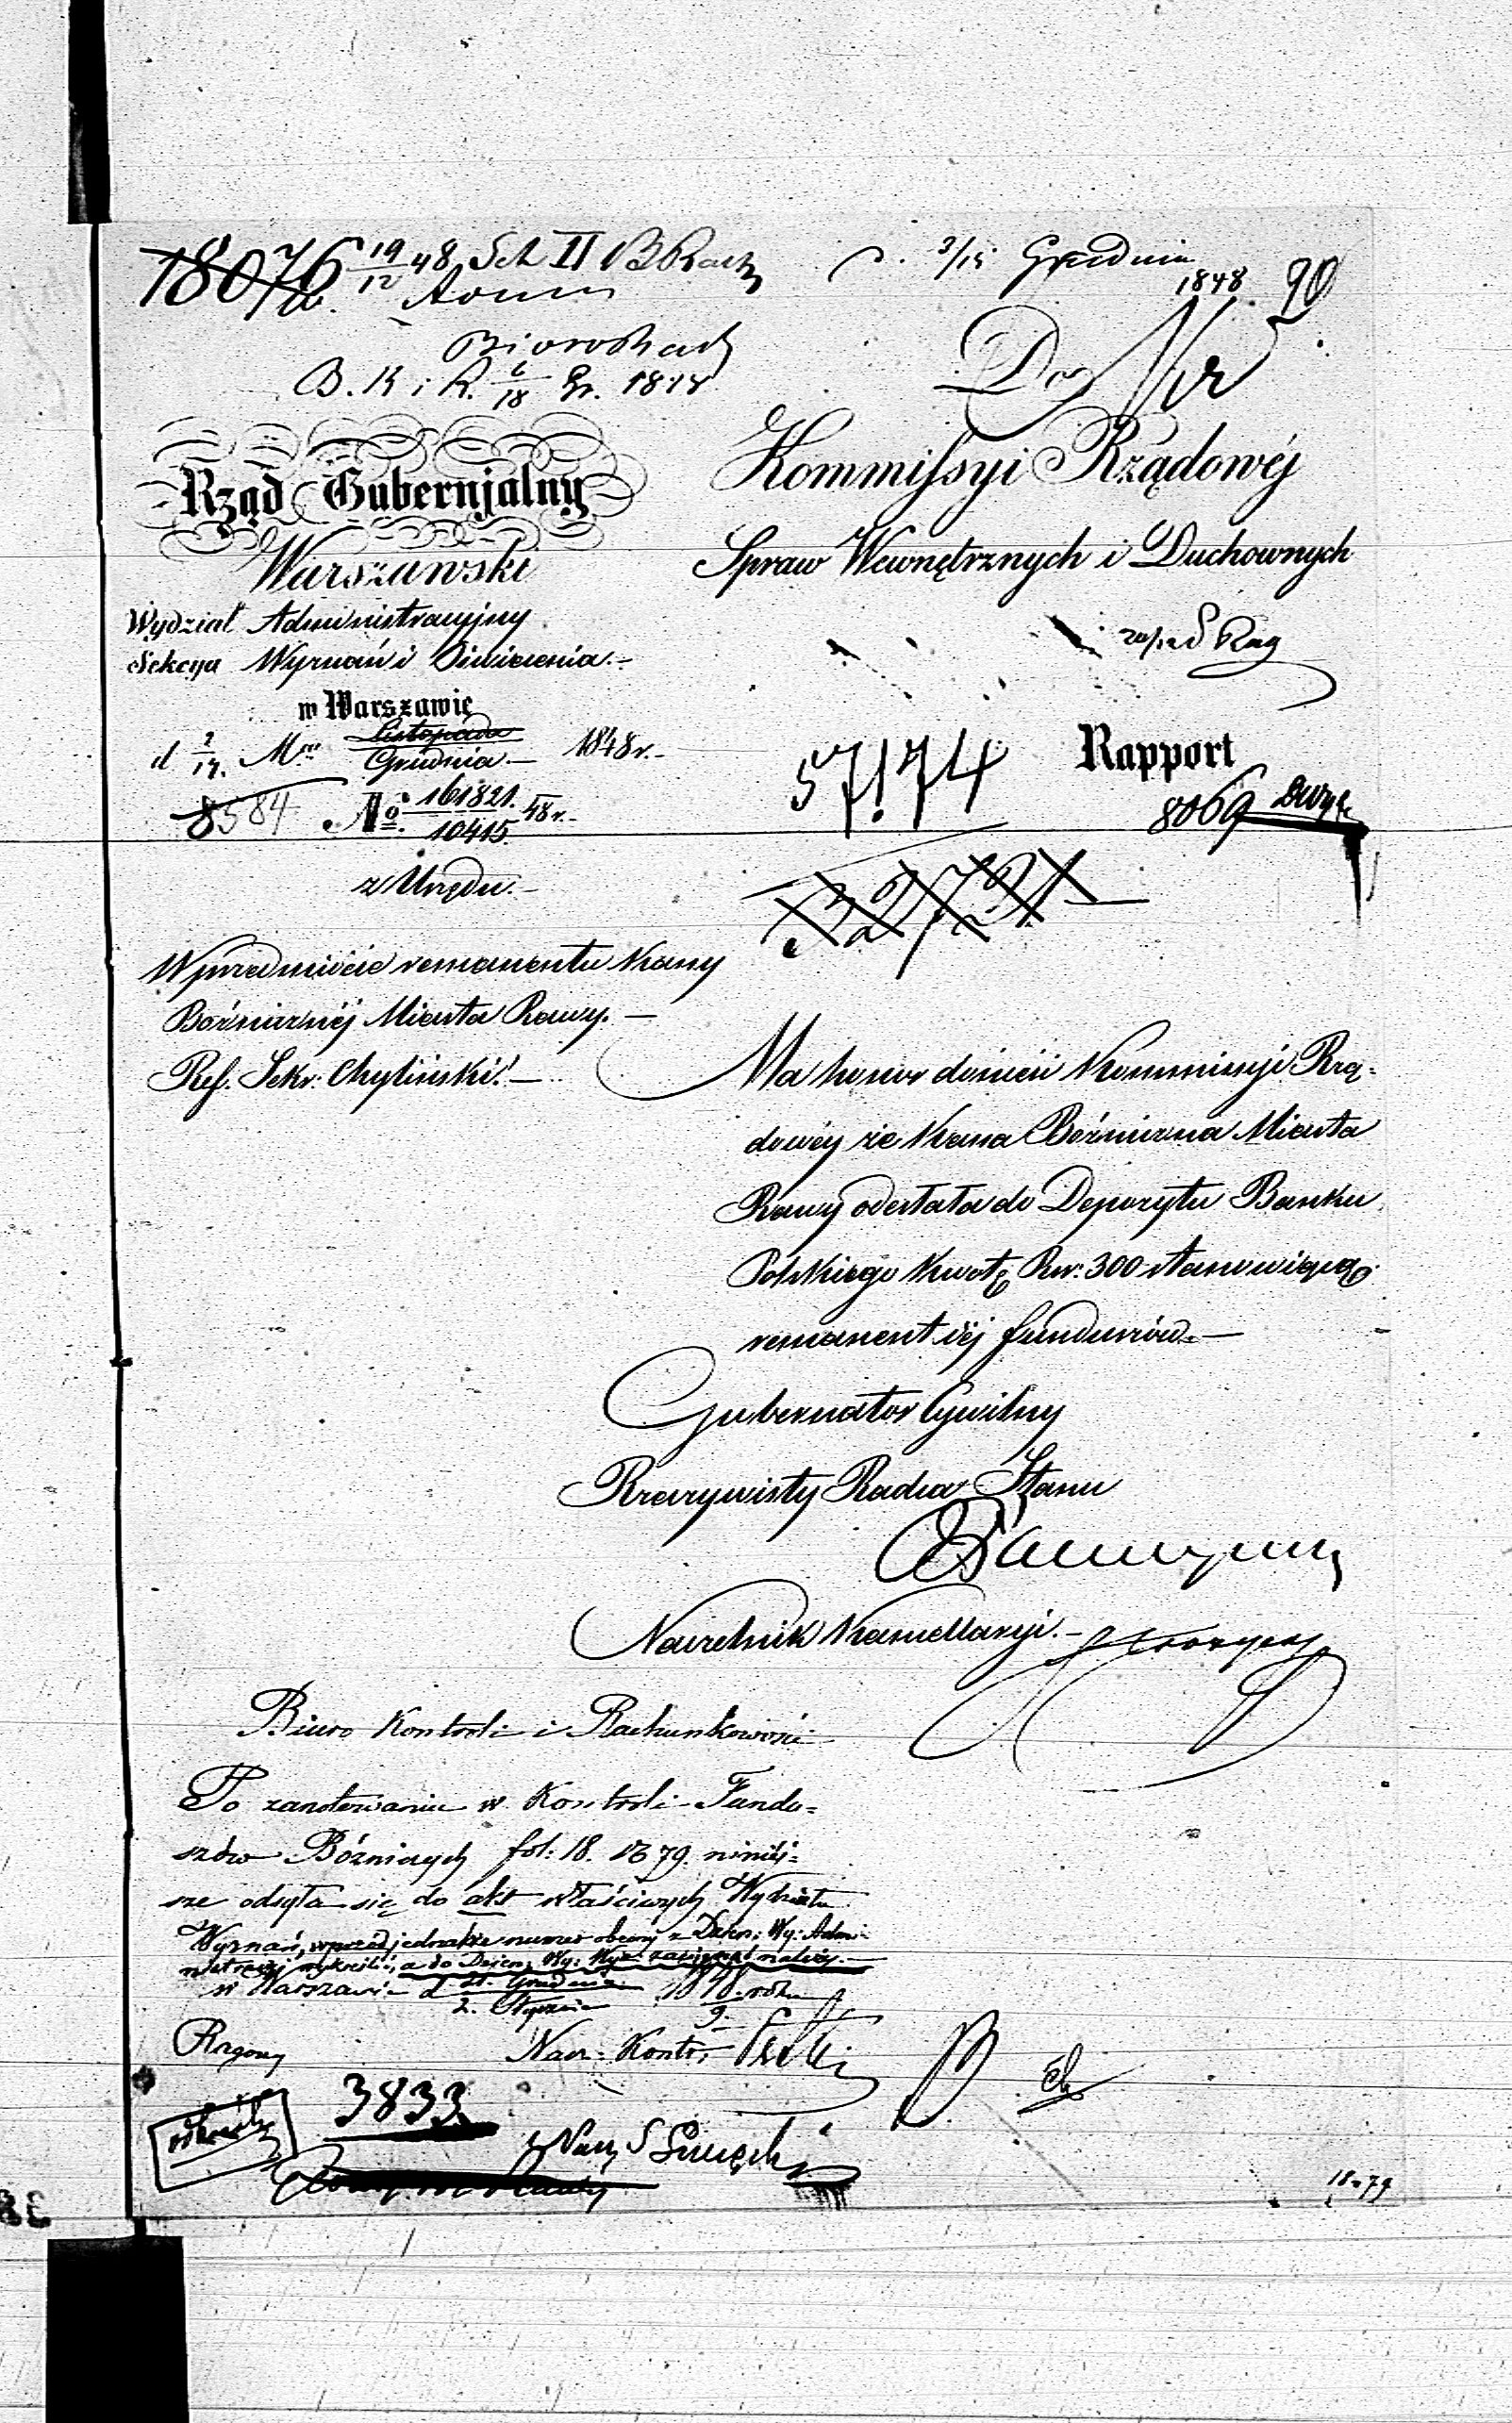 18076 19/12 48 Sek II B Rach
3/15 Grudnia 1848. 90
B. K i R. 6/18 Gr. 1848
Do
Rząd Gubernjalny
Warszawski
Wydział Administracyjny
Sekcya Wyznań i
w Warszawie
d 2/14. Mca Listopada Grudnia 1848 r.
8584 No. 161821./10415. 48 r.
z Urzędu.
Kommissyi Rządowéj
Spraw Wewnętrznych i Duchownych
57174
Rapport
8069
W przedmiocie remanentu Kassy
Bóżniczéj Miasta Rawy.
Ref. Sekr: Chyliński.
Ma honor donieść Kommissyi Rzą-
dowéj że Kassa Bóżniczna Miasta
Rawy odesłała do Depozytu Banku
Polskiego kwotę Rsr: 300 stanowiącą
remanent jéj funduszów.
Gubernator Cywilny
Rzeczywisty Radca Stanu
Naczelnik Kancellaryi.
Biuro Kontroli i Rachunkowości
Po zanotowaniu w Kontroli Fundu=
szów Bóźniczych fol: 18. i 79. niniéj=
sze odsyła się do akt właściwych Wydziału
Wyznań, wprzód jednakże numer obecny z Dzien: Wy: Admi
nistracyj wykreślić, a do Dzien: Wy: Wyz: zaciągnąć należy.
w Warszawie d. 21. Grudnia / 2. Stycznia 1848/9. roku
Nacz: Kontr:
3833
18-79